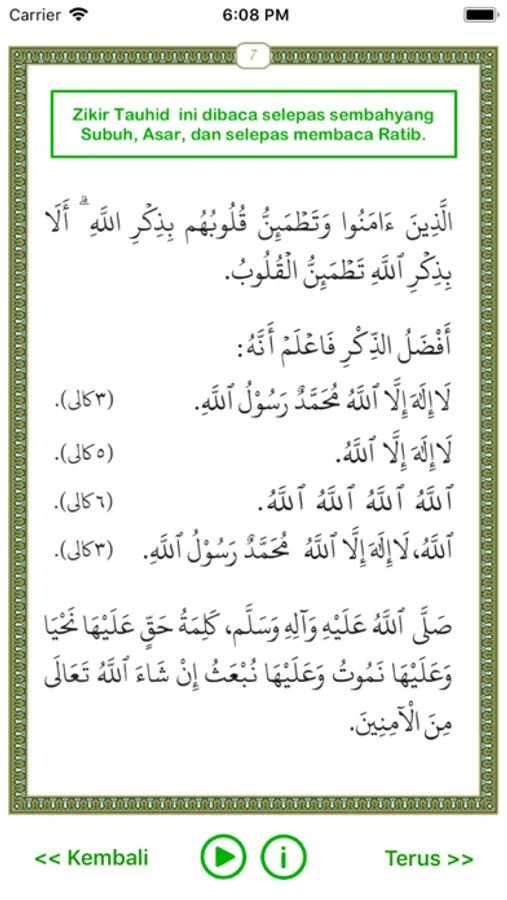 Carrier 6:08 PM
7
Zikir Tauhid ini dibaca selepas sembahyang
Subuh, Asar, dan selepas membaca Ratib.
الَّذِينَ ءَامَنُوا وَتَطْمَئِنُّ قُلُوبُهُم بِذِكْرِ اللَّهِ ۗ أَلَا
بِذِكْرِ ٱللَّهِ تَطْمَئِنُّ الْقُلُوبُ.
أَفْضَلُ الذِّكْرِ فَاعْلَمْ أَنَّهُ:
لَا إِلَٰهَ إِلَّا ٱللَّهُ مُحَمَّدٌ رَسُوْلُ ٱللَّهِ. (٣ کالی).
لَا إِلَٰهَ إِلَّا ٱللَّهُ. (٥ کالی).
ٱللَّهُ ٱللَّهُ ٱللَّهُ ٱللَّهُ. (٦ کالی).
ٱللَّهُ، لَا إِلَٰهَ إِلَّا ٱللَّهُ مُحَمَّدٌ رَسُوْلُ ٱللَّهِ. (٣ کالی).
صَلَّى ٱللَّهُ عَلَيْهِ وَآلِهِ وَسَلَّم، كَلِمَةُ حَقٍّ عَلَيْهَا نَحْيَا
وَعَلَيْهَا نَمُوتُ وَعَلَيْهَا نُبْعَثُ إِنْ شَاءَ ٱللَّهُ تَعَالَى
مِنَ الْآمِنِينَ.
<< Kembali i Terus >>